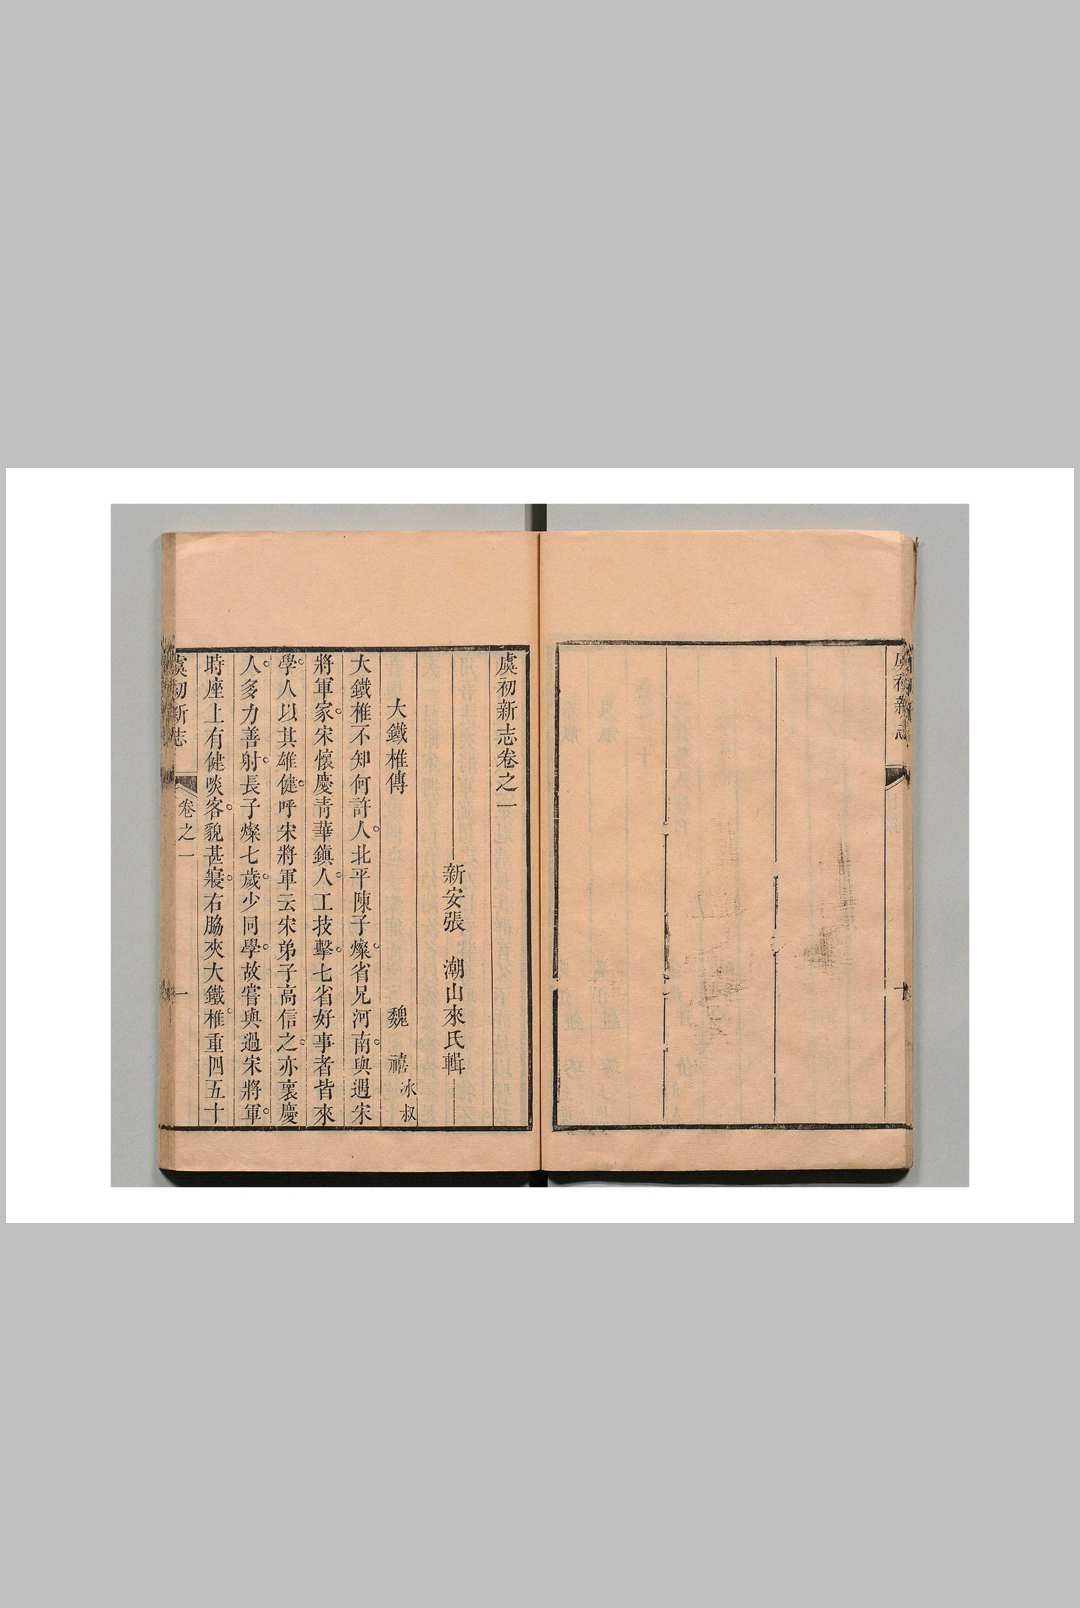 虞初新志
十
虞初新志卷之一
新安張　潮山來氏輯
大鐵椎傳　魏　禧冰叔
大鐵椎不知何許人北平陳子燦省兄河南與遇宋
將軍家宋懷慶青華鎮人工技擊七省好事者皆來
學人以其雄健呼宋將軍云宋弟子高信之亦褱慶
人多力善射長子燦七歲少同學故嘗與過宋將軍
時座上有健啖客貌甚寢右脇夾大鐵椎重四五十
虞初新志　卷之一　一